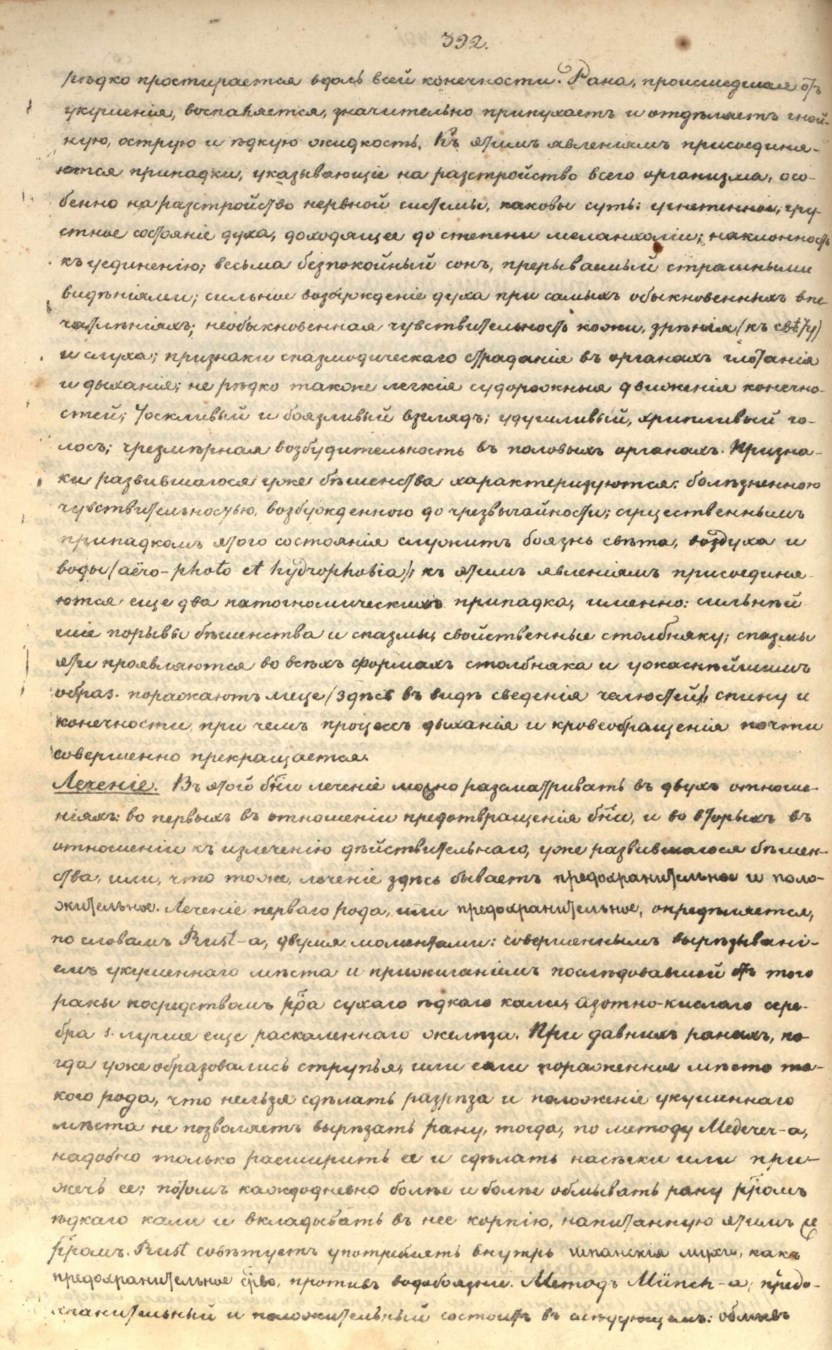 392.
рѣдко простирается вдоль всей конечности. Рана, происшедшая отъ
укушенія, воспаляется, значительно припухаетъ и отдѣляетъ гной-
ную, острую и ѣдкую жидкость. Къ этимъ явленіямъ присоединя-
ются припадки, указывающіе на разстройство всего организма, осо-
бенно на разстройство нервной системы, каковы суть: угнетенное, гру-
стное состояніе духа, доходящее до степени меланхоліи; наклонность
къ уединенію; весьма безпокойный сонъ, прерываемый страшными
видѣніями; сильное возбужденіе духа при самыхъ обыкновенныхъ впе
чатлѣніяхъ; необыкновенная чувствительность кожи, зрѣнія (къ свѣту)
и слуха; признаки спазмодическаго страданія въ органахъ глотанія
и дыханія; не рѣдко также легкія судорожныя движенія конечно-
стей; тоскливый и боязливый взглядъ; удушливый, хрипливый го-
лосъ; чрезмѣрная возбудительность въ половыхъ органахъ. Призна-
ки развившагося уже бѣшенства характеризуются: болѣзненною
чувствительностью, возбужденного до чрезвычайности; существеннымъ
припадкомъ этого состоянія служитъ боязнь свѣта, воздуха и
воды (aëro-photo et hydrophobia); къ этимъ явленіямъ присоединя-
ются еще два патогномическихъ припадка, именно: сильнѣй
шіе порывы бѣшенства и спазмы, свойственные столбняку; спазмы
эти проявляются во всѣхъ формахъ столбняка и ужаснѣйшимъ
образ. поражаютъ лице (здѣсь въ видѣ сведенія челюстей), спину и
конечности, при чемъ процессъ дыханія и кровеобращенія почти
совершенно прекращается.
Леченіе. Въ этой бѣни леченіе можно разсматривать въ двухъ отноше-
ніяхъ: во первыхъ въ отношеніи предотвращенія бѣни, и во вторыхъ въ
отношеніи къ излеченію дѣйствительнаго, уже развившагося бѣшен-
ства, или, что тоже, леченіе здѣсь бываетъ предохранительное и поло-
жительное. Леченіе перваго рода, или предохранительное, опредѣляется,
по словамъ Rust-а, двумя моментами: совершеннымъ вырѣзывані-
емъ укушеннаго мѣста и прижиганіемъ послѣдовавшей отъ того
раны посредствомъ рра сухаго ѣдкаго кали, азотно-кислаго сере-
бра s. лучше еще раскаленнаго желѣза. При давнихъ ранахъ, ко-
гда уже образовались струпья, или если пораженное мѣсто та-
кого рода, что нельзя сдѣлать разрѣза и положеніе укушеннаго
мѣста не позволяетъ вырѣзать рану, тогда, по методу Mederer-а,
надобно только расширить ее и сдѣлать насѣчки или при-
жечь ее; потомъ каждодневно болѣе и болѣе обмывать рану рромъ
ѣдкаго кали и вкладывать въ нее корпію, напитанную этимъ же
рромъ. Rust совѣтуетъ употреблять внутрь шпанскія мухи, какъ
предохранительное срво, противъ водобоязни. Методъ Münch-а, предо-
хранительный и положительный состоитъ въ слѣдующемъ: обмывъ